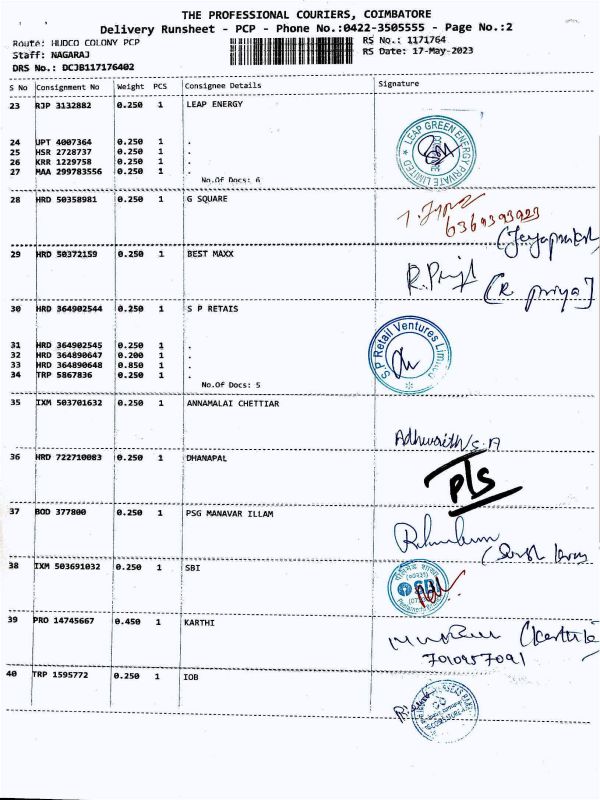 THE PROFESSIONAL COURIERS, COIMBATORE
Delivery Runsheet - PCP - Phone No.:0422-3505555 - Page No.:2
Route: HUDCO COLONY PCP
RS No.: 1171764
Staff: NAGARAJ
RS Date: 17-May-2023
DRS No.: DCJB117176402
S No Consignment No Weight PCS Consignee Details Signature
23 RJP 3132882 0.250 1 LEAP ENERGY
LEAP GREEN ENERGY PRIVATE LIMITED
24 UPT 4007364 0.250 1 .
25 HSR 2728737 0.250 1 .
26 KRR 1229758 0.250 1 .
27 MAA 299783556 0.250 1 .
No.Of Docs: 6
28 HRD 50358981 0.250 1 G SQUARE
6369393923
29 HRD 50372159 0.250 1 BEST MAXX
(R. priya)
30 HRD 364902544 0.250 1 S P RETAIS
S.P Retail Ventures Limited
31 HRD 364902545 0.250 1 .
32 HRD 364890647 0.200 1 .
33 HRD 364890648 0.850 1 .
34 TRP 5867836 0.250 1 .
No.Of Docs: 5
35 IXM 503701632 0.250 1 ANNAMALAI CHETTIAR
36 HRD 722710083 0.250 1 DHANAPAL
37 BOD 377800 0.250 1 PSG MANAVAR ILLAM
38 IXM 503691032 0.250 1 SBI
SBI
39 PRO 14745667 0.450 1 KARTHI
7010957091
40 TRP 1595772 0.250 1 IOB